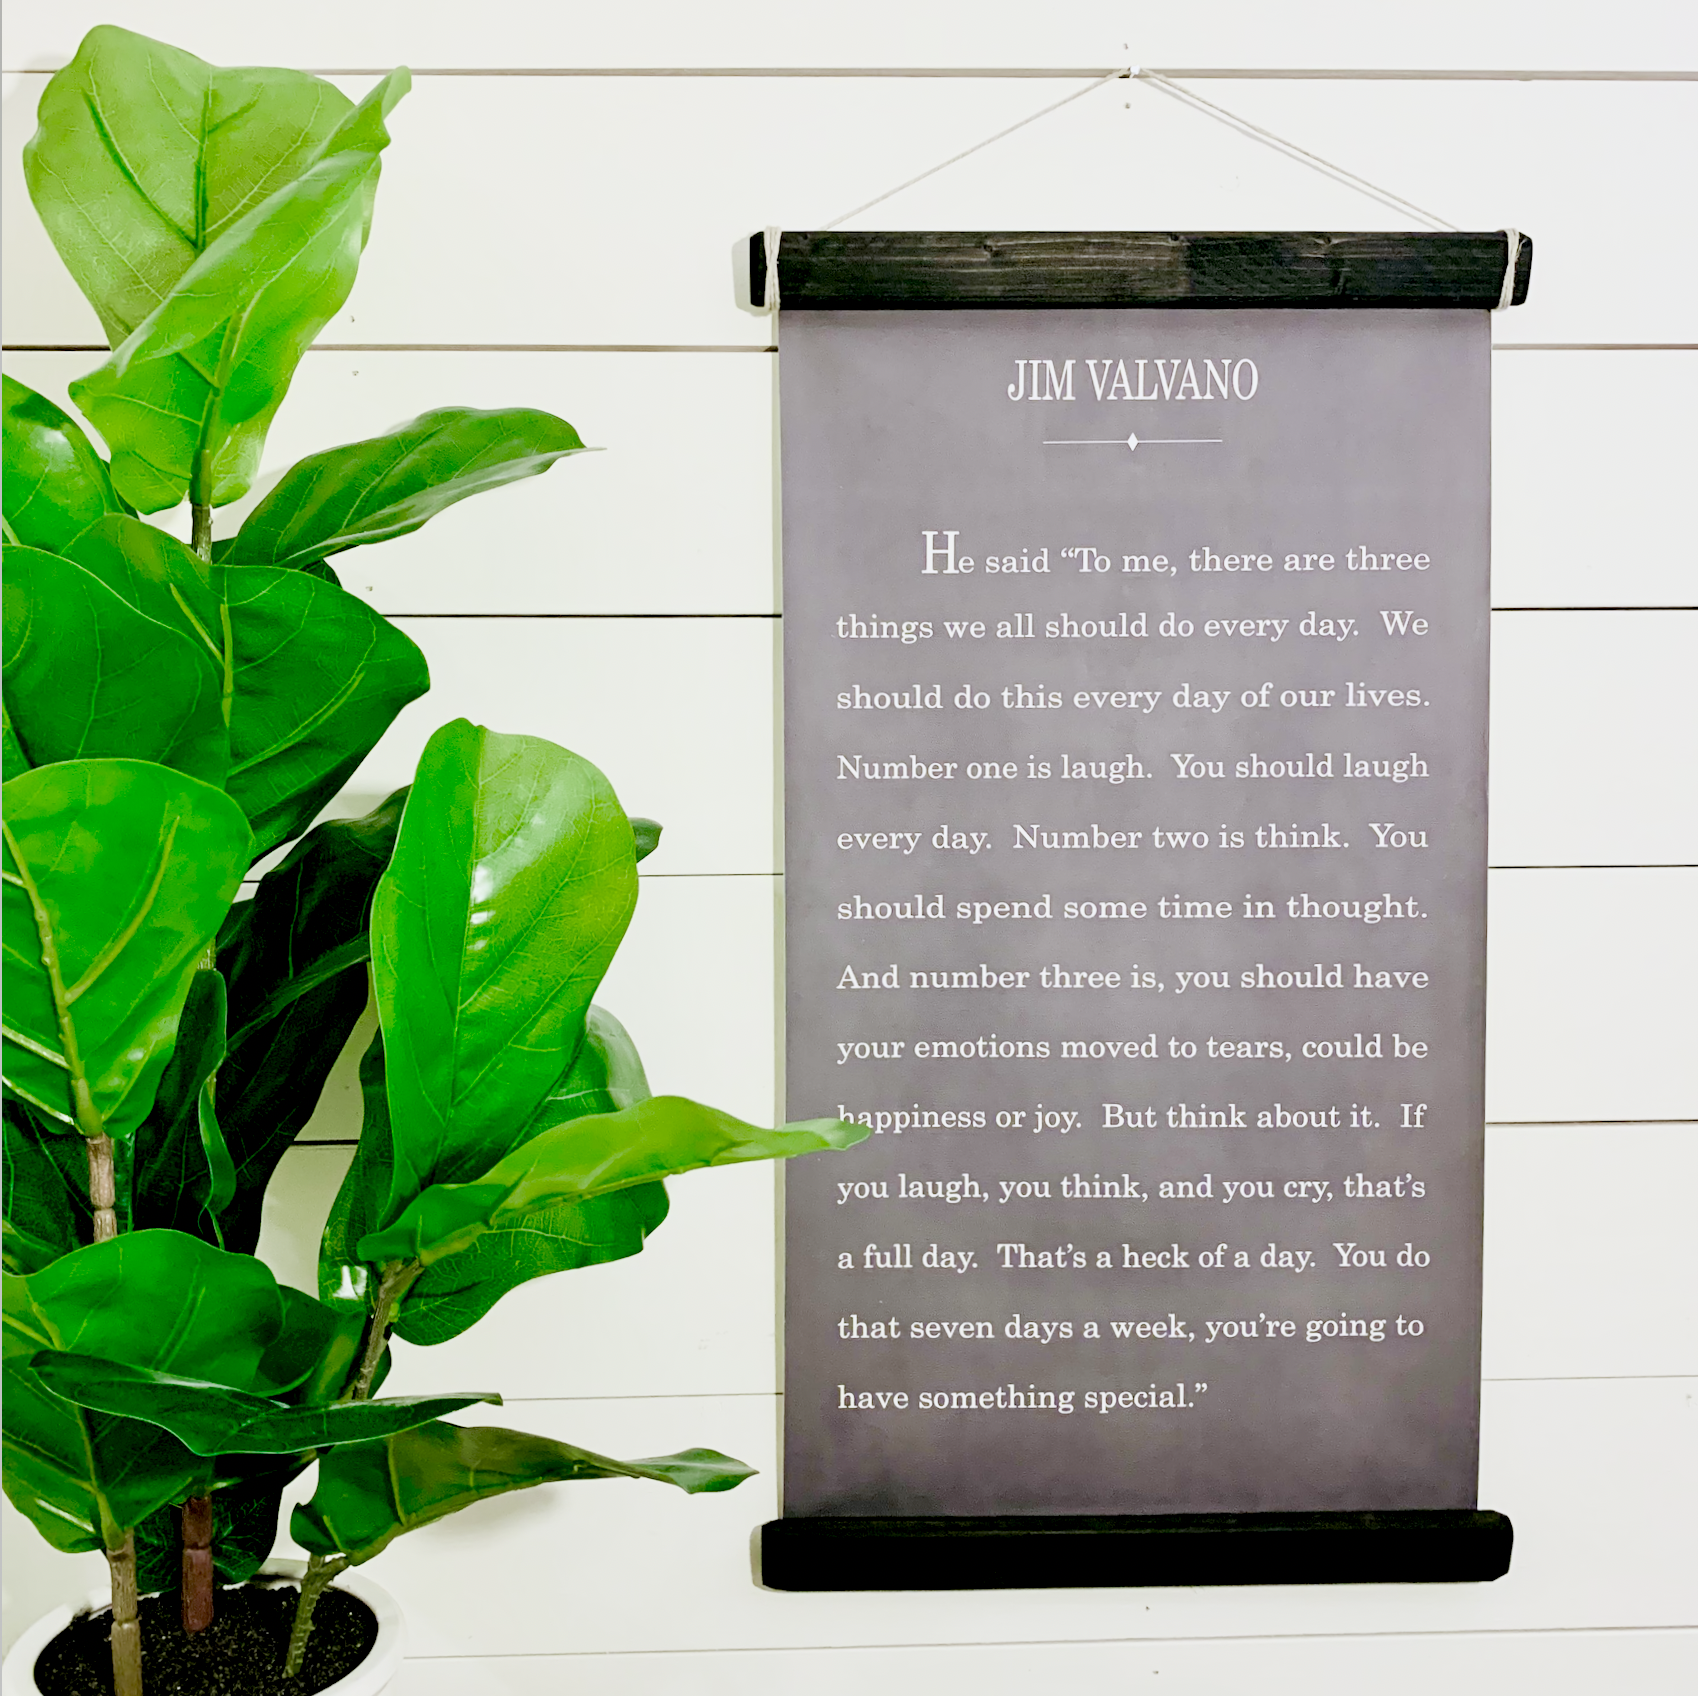 JIM VALVANO
He said “To me, there are three
things we all should do every day. We
should do this every day of our lives.
Number one is laugh. You should laugh
every day. Number two is think. You
should spend some time in thought.
And number three is, you should have
your emotions moved to tears, could be
happiness or joy. But think about it. If
you laugh, you think, and you cry, that’s
a full day. That’s a heck of a day. You do
that seven days a week, you’re going to
have something special.”